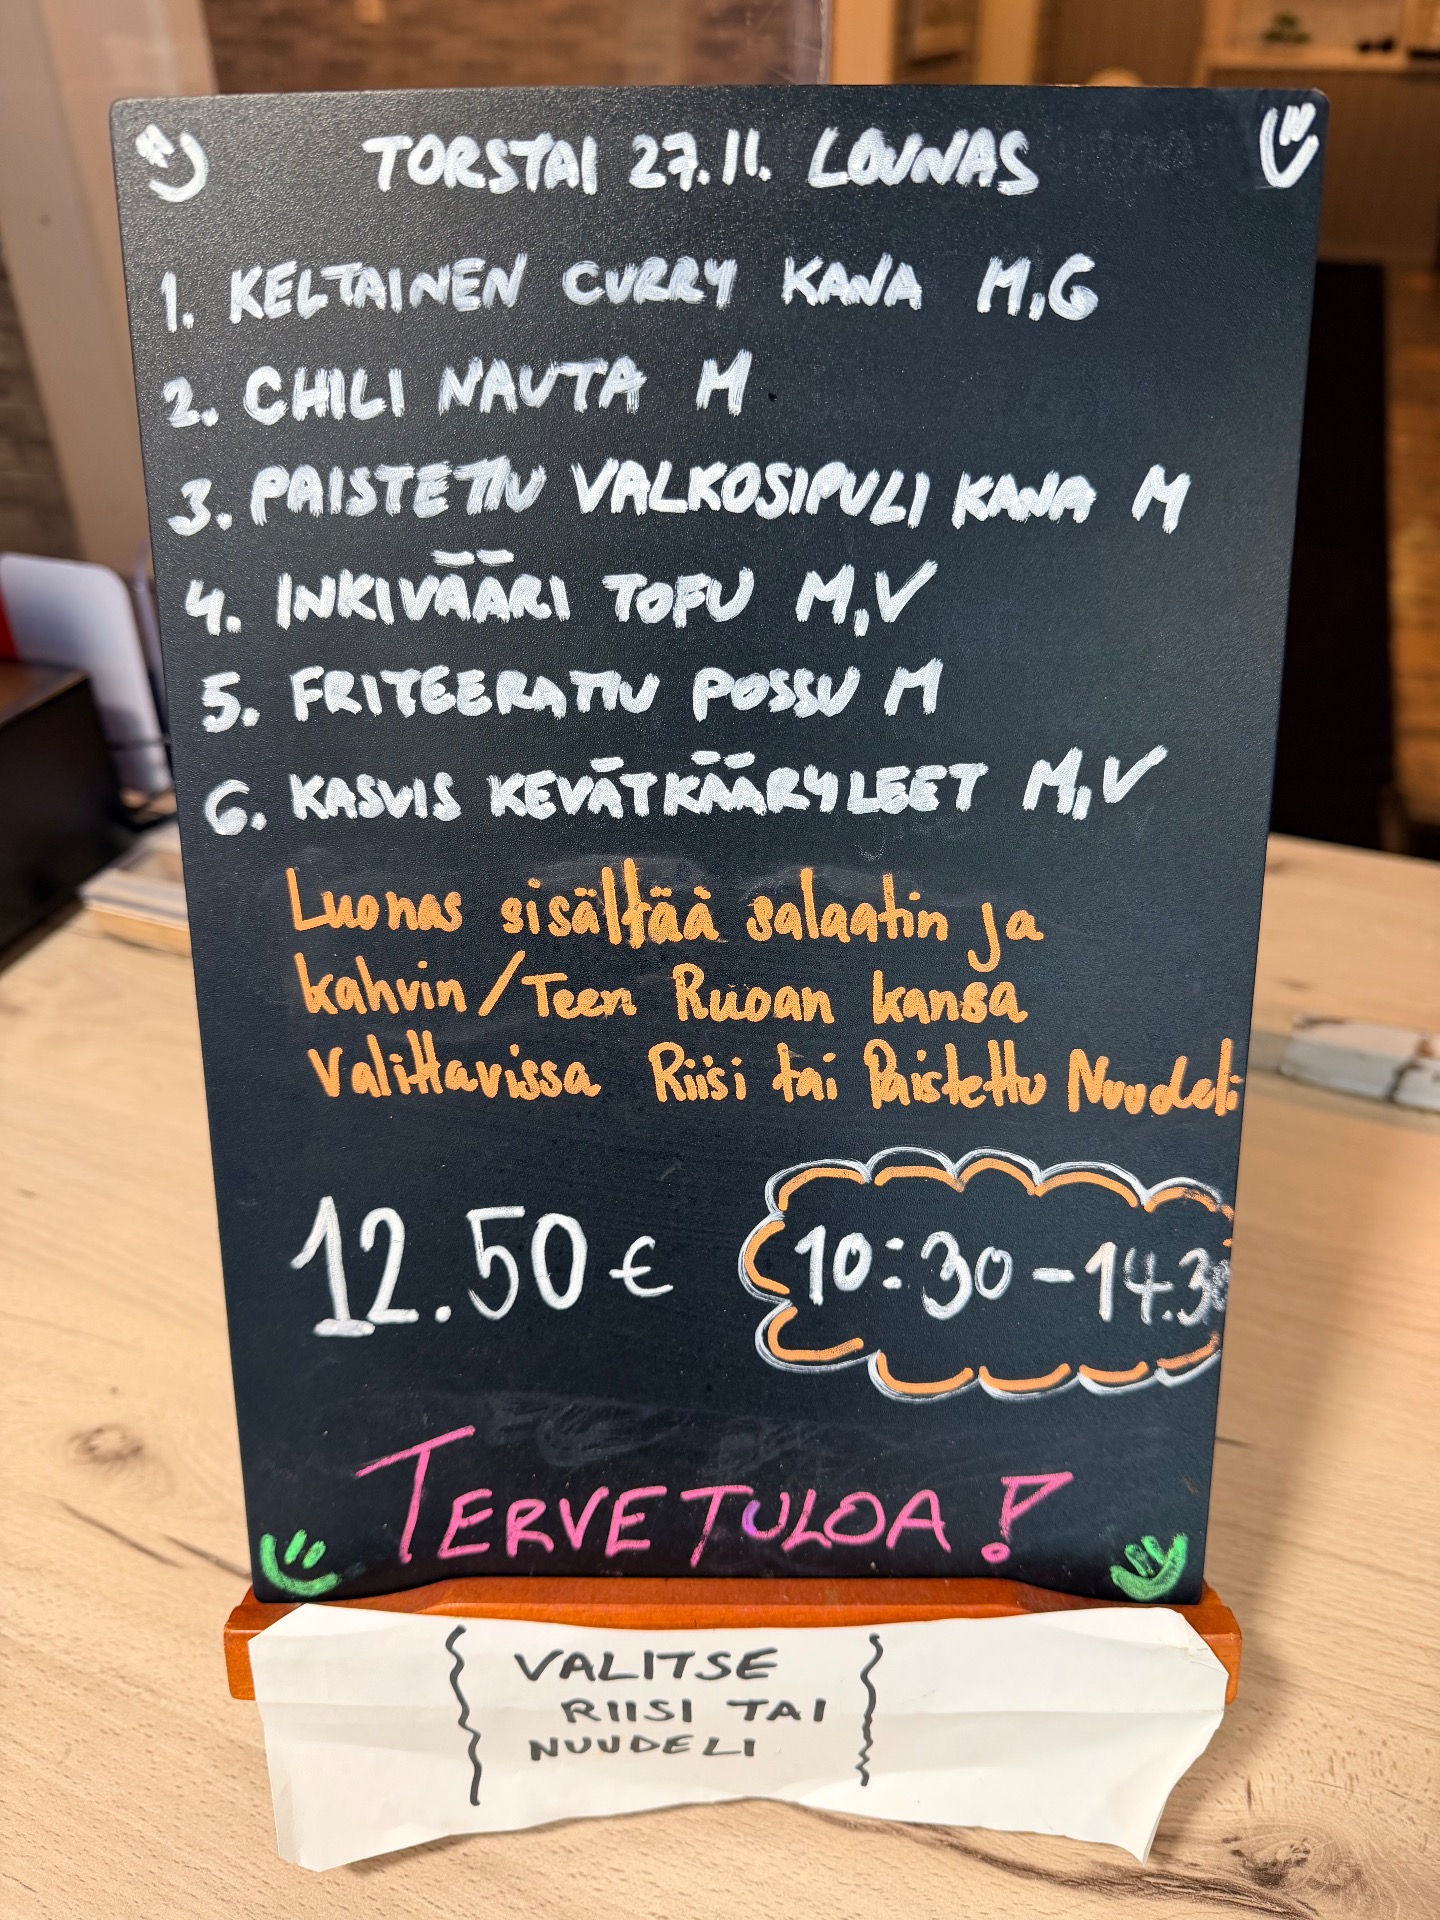 TORSTAI 27.11. LOUNAS
1. KELTAINEN CURRY KANA M,G
2. CHILI NAUTA M
3. PAISTETTU VALKOSIPULI KANA M
4. INKIVÄÄRI TOFU M,V
5. FRITEERATTU POSSU M
6. KASVIS KEVÄTKÄÄRYLEET M,V
Luonas sisältää salaatin ja
kahvin/Teen Ruoan kansa
Valittavissa Riisi tai Paistettu Nuudeli
12.50 €
10:30 - 14.30
TERVETULOA!
VALITSE
RIISI TAI
NUUDELI